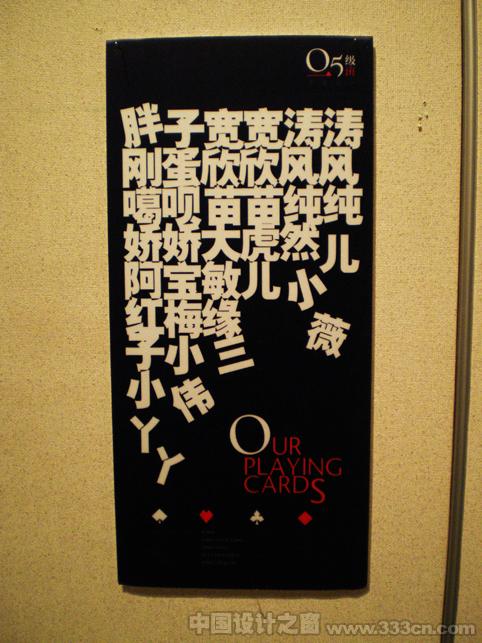 05级
班
胖子宽宽涛涛
刚蛋欣欣风风
噶呗苗苗纯纯
娇娇大虎然儿
阿宝敏儿小薇
红梅缘
子小三
小伟
丫丫
OUR
PLAYING
CARDS
中国设计之窗
www.333cn.com